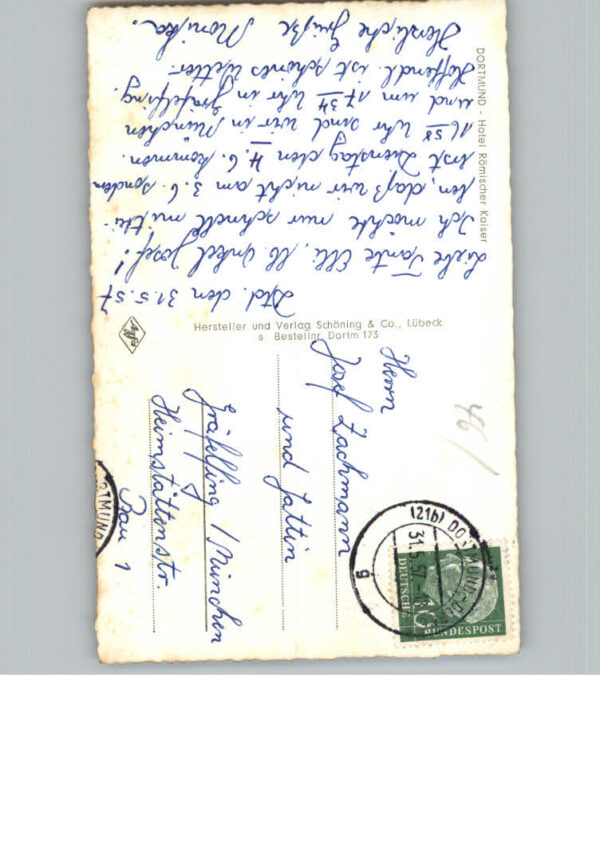 DORTMUND - Hotel Römischer Kaiser
Dtd. den 31.5.57
Liebe Tante Elli, lb Onkel Josef!
Ich möchte nur schnell mittei-
len, daß wir nicht am 3.6. sondern
erst Dienstag den 4.6. kommen.
16 58 Uhr sind wir in München
und um 17 34 Uhr in Gräfelfing.
Hoffentl. ist schönes Wetter.
Herzliche Grüße Monika.
Hersteller und Verlag Schöning & Co., Lübeck
s Bestellnr. Dortm 173
Agfa
Herrn
Josef Zachmann
und Gattin
Gräfelfing / München
Heimstättenstr.
Bau 1
46/
(21b) DORTMUND
31.5.57
b
DEUTSCHE
BUNDESPOST
10
DORTMUND